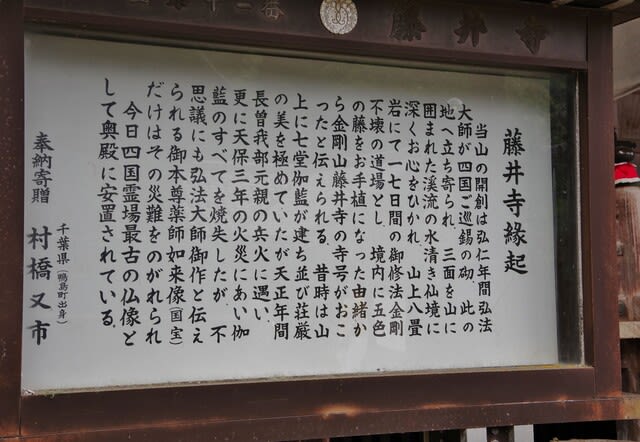 藤井寺
藤井寺縁起
当山の開創は弘仁年間弘法
大師が四国ご巡錫の砌、此の
地へ立ち寄られ、三面を山に
囲まれた渓流の水清き仙境に
深くお心をひかれ、山上八畳
岩にて一七日間の御修法金剛
不壊の道場とし、境内に五色
の藤をお手植になった由緒か
ら金剛山藤井寺の寺号がおこ
ったと伝えられる。昔時は山
上に七堂伽藍が建ち並び荘厳
の美を極めていたが天正年間
長曽我部元親の兵火に遇い、
更に天保三年の火災にあい伽
藍のすべてを焼失したが、不
思議にも弘法大師御作と伝え
られる御本尊薬師如来像(国宝)
だけはその災難をのがれられ
今日四国霊場最古の仏像と
して奥殿に安置されている。
奉納寄贈 千葉県(鴨島町出身) 村橋又市